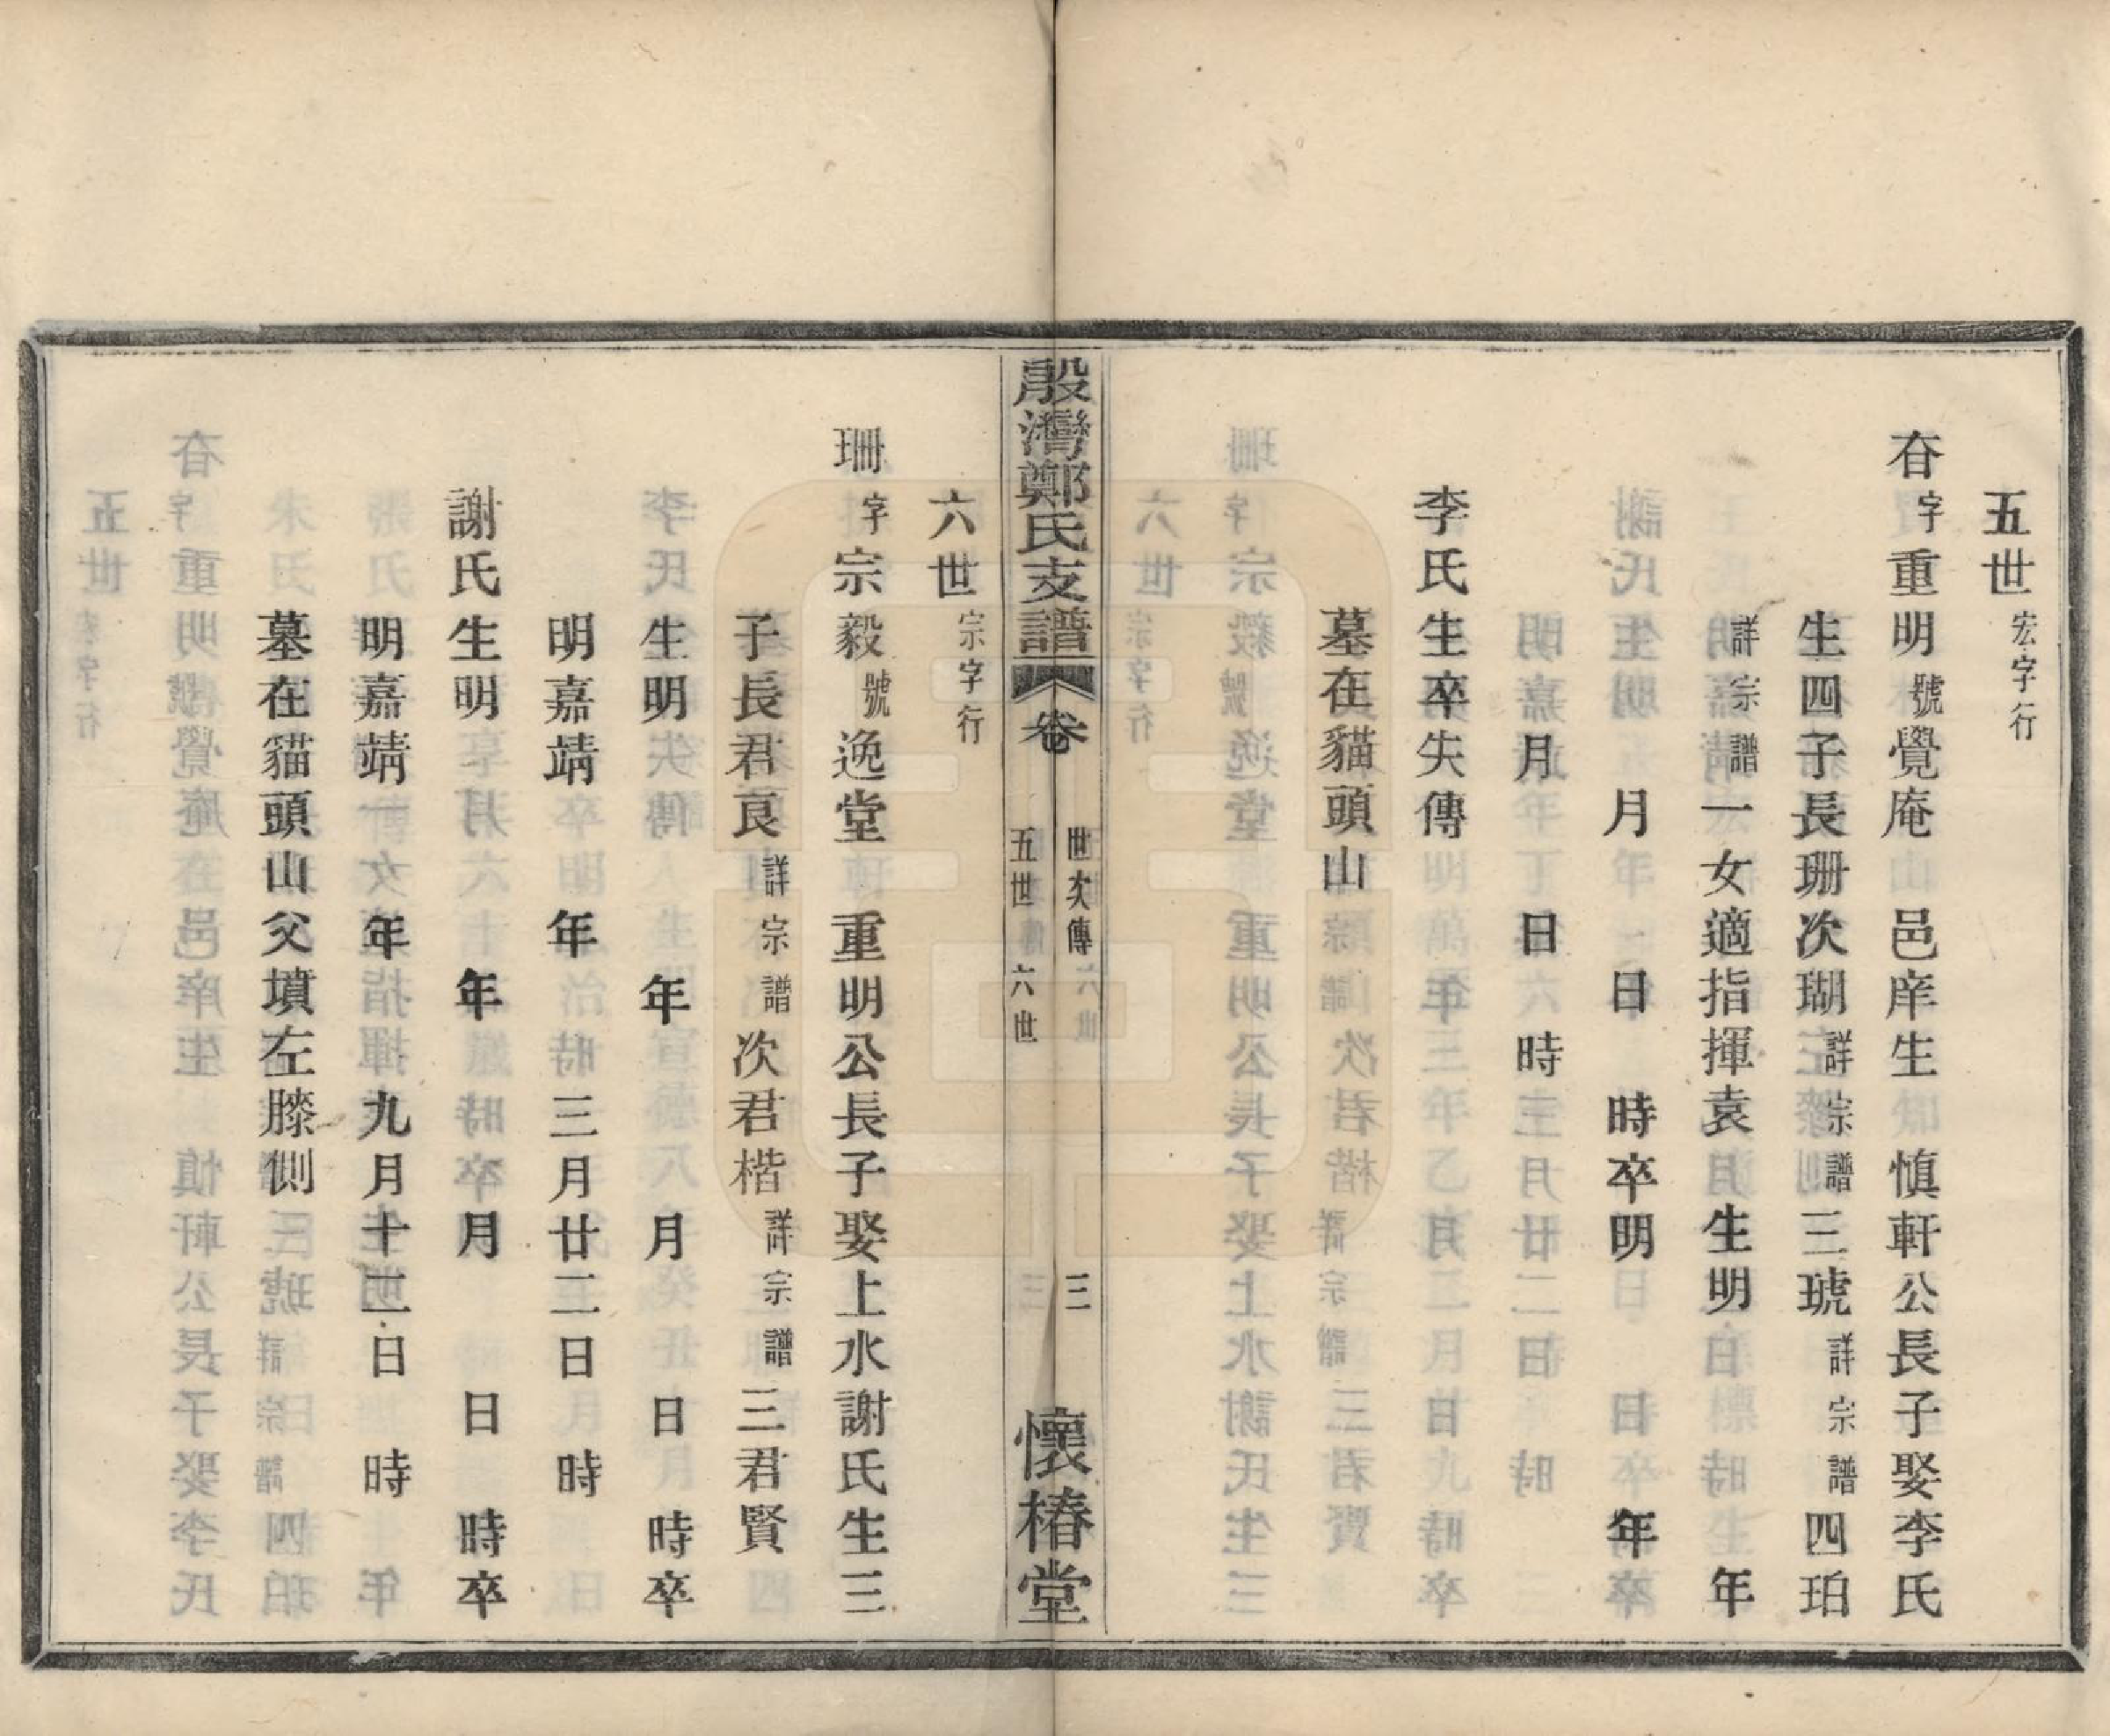 五世宏字行
昚字重明號覺庵 邑庠生 慎軒公長子娶李氏
生四子長珊次瑚詳宗譜三琥詳宗譜四珀
詳宗譜一女適指揮袁 生明 年
月 日 時卒明 年
月 日 時
李氏生卒失傳
墓在貓頭山
殷灣鄭氏支譜
卷
世次傳
五世 六世
三
懷椿堂
六世宗字行
珊字宗毅號逸堂 重明公長子娶上水謝氏生三
子長君良詳宗譜次君楷詳宗譜三君賢
生明 年 月 日 時卒
明嘉靖 年 三月廿二日 時
謝氏生明 年 月 日 時卒
明嘉靖 年 九月十二日 時
墓在貓頭山父墳左膝側